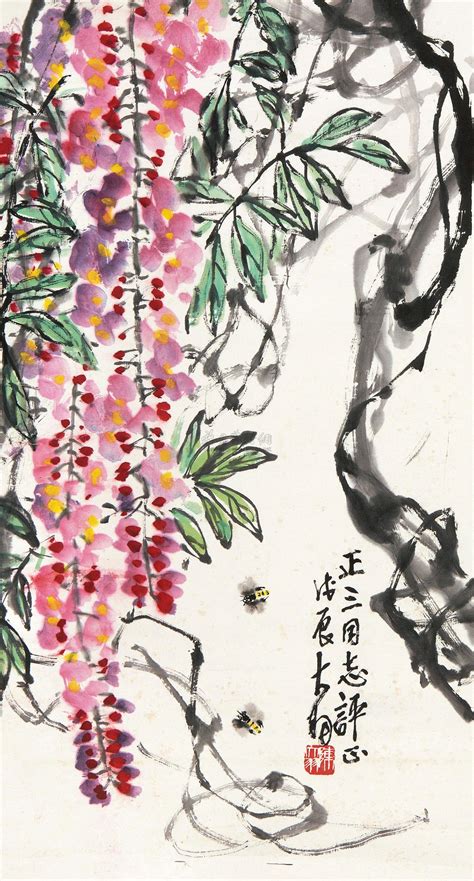 正三同志評正
戊辰大羽